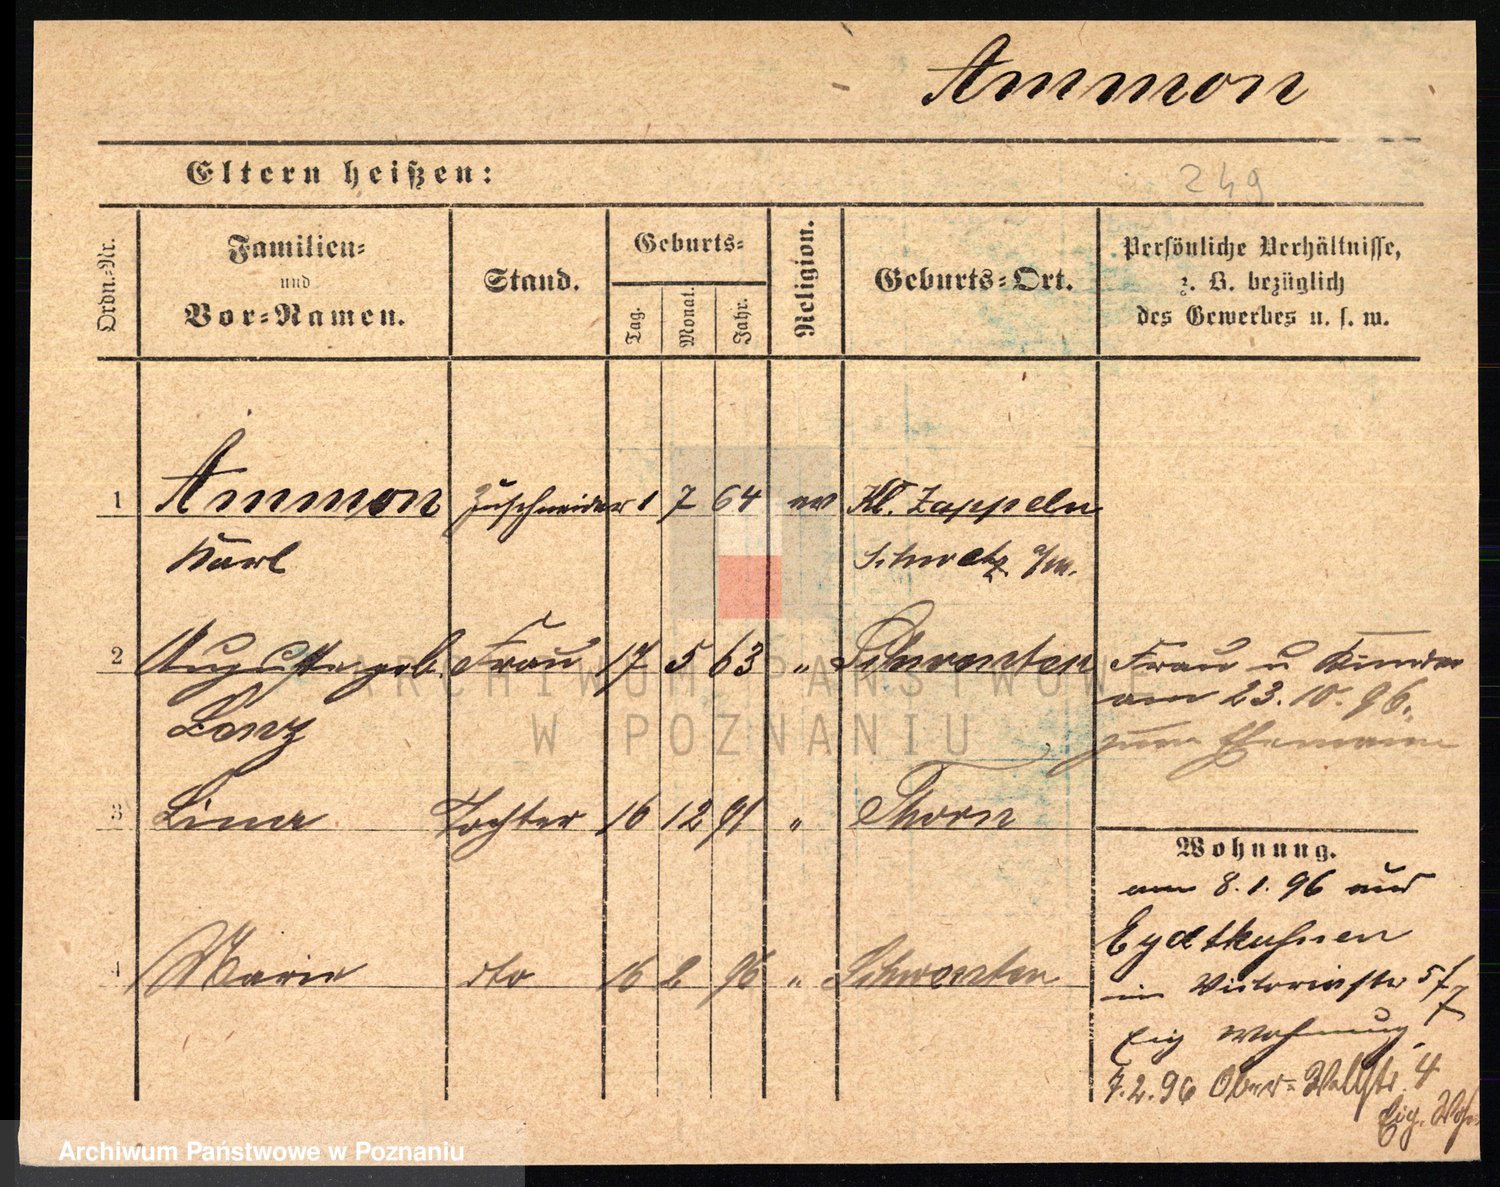 Ammon
Eltern heißen:
249
Ordn.-Nr.
Familien-
und
Vor-Namen.
Stand.
Geburts-
Tag.
Monat.
Jahr.
Religion.
Geburts-Ort.
Persönliche Verhältnisse,
z. B. bezüglich
des Gewerbes u. s. w.
1 Ammon Zuschneider 1 7 64 ev Kl. Zappeln
Karl Schwetz a/W.
2 Auguste geb. Frau 17 5 63 " Schwersten Frau u Kinder
Lenz am 23.10.96.
zum Ehemann
3 Lina Tochter 16 12 91 " Thorn
Wohnung.
am 8.1.96 aus
Eydtkuhnen
4 Marie dto 16 2 96 " Schwersten
in Victoriastr 5/7
Eig Wohnung.
7.2.96 Ober-Wallstr. 4
Eig. Wohn
ARCHIWUM PAŃSTWOWE
W POZNANIU
Archiwum Państwowe w Poznaniu